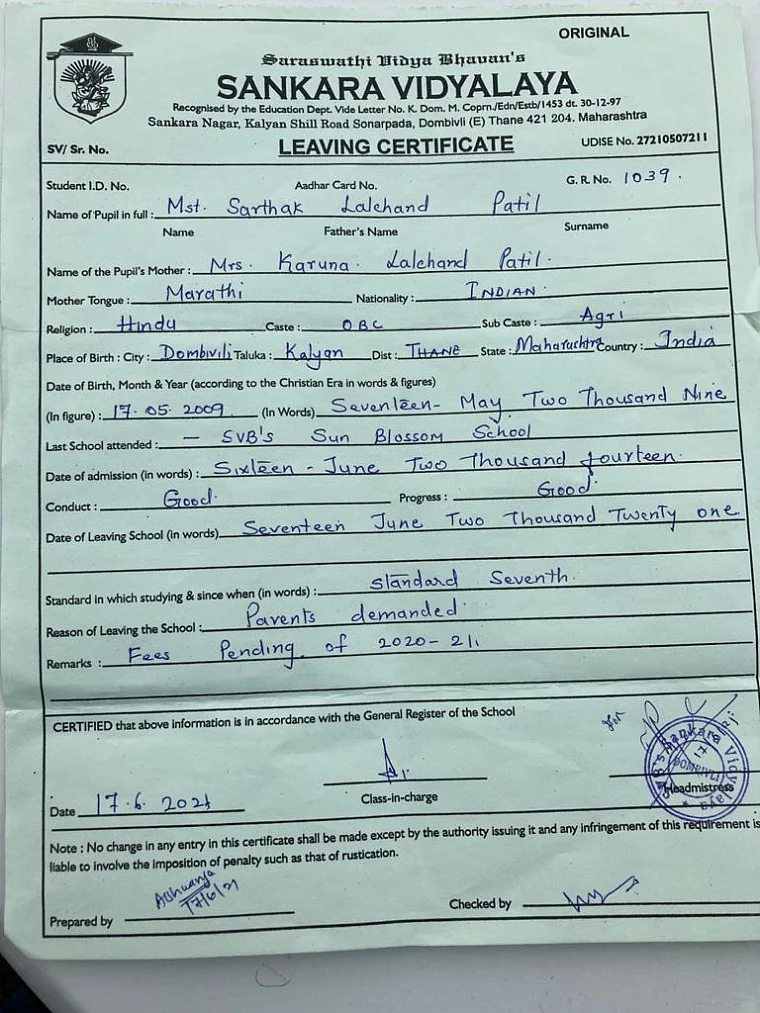 ORIGINAL
Saraswathi Vidya Bhavan's
SANKARA VIDYALAYA
Recognised by the Education Dept. Vide Letter No. K. Dom. M. Coprn./Edn/Estb/1453 dt. 30-12-97
Sankara Nagar, Kalyan Shill Road Sonarpada, Dombivli (E) Thane 421 204. Maharashtra
SV/ Sr. No. LEAVING CERTIFICATE UDISE No. 27210507211
Student I.D. No. Aadhar Card No. G. R. No. 1039.
Name of Pupil in full : Mst. Sarthak Lalchand Patil
Name Father's Name Surname
Name of the Pupil's Mother : Mrs. Karuna. Lalchand Patil.
Mother Tongue : Marathi Nationality : INDIAN.
Religion : Hindu Caste : OBC Sub Caste : Agri
Place of Birth : City : Dombivili Taluka : Kalyan Dist : THANE State : Maharuchtra Country : India
Date of Birth, Month & Year (according to the Christian Era in words & figures)
(In figure) : 17.05.2009 (In Words) Seventeen- May Two Thousand Nine
Last School attended : — SVB's Sun Blossom School
Date of admission (in words) : Sixteen - June Two Thousand fourteen.
Conduct : Good. Progress : Good.
Date of Leaving School (in words) Seventeen June Two Thousand Twenty one
Standard in which studying & since when (in words) : standard Seventh.
Reason of Leaving the School : Parents demanded.
Remarks : Fees Pending of 2020-21.
CERTIFIED that above information is in accordance with the General Register of the School
for
SVB's Sankara Vidyalaya
DOMBIVLI
Date 17.6.2021 Class-in-charge Headmistress
Note : No change in any entry in this certificate shall be made except by the authority issuing it and any infringement of this requirement is
liable to involve the imposition of penalty such as that of rustication.
17/6/21
Prepared by Checked by